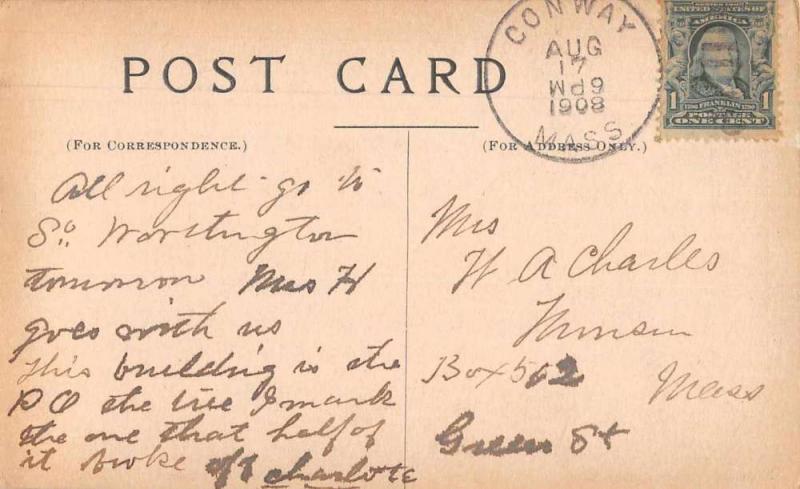 POST CARD
CONWAY
AUG
17
1908
MASS
UNITED STATES OF
AMERICA
1 FRANKLIN 1
POSTAGE
ONE CENT
(FOR CORRESPONDENCE.)
(FOR ADDRESS ONLY.)
All right go to
So. Worthington
tomorrow Mrs H
goes with us
This building is the
PO the tree I mark
the one that half of
it broke off Charlotte
Mrs
H A Charles
Monson
Box 562
Mass
Green St